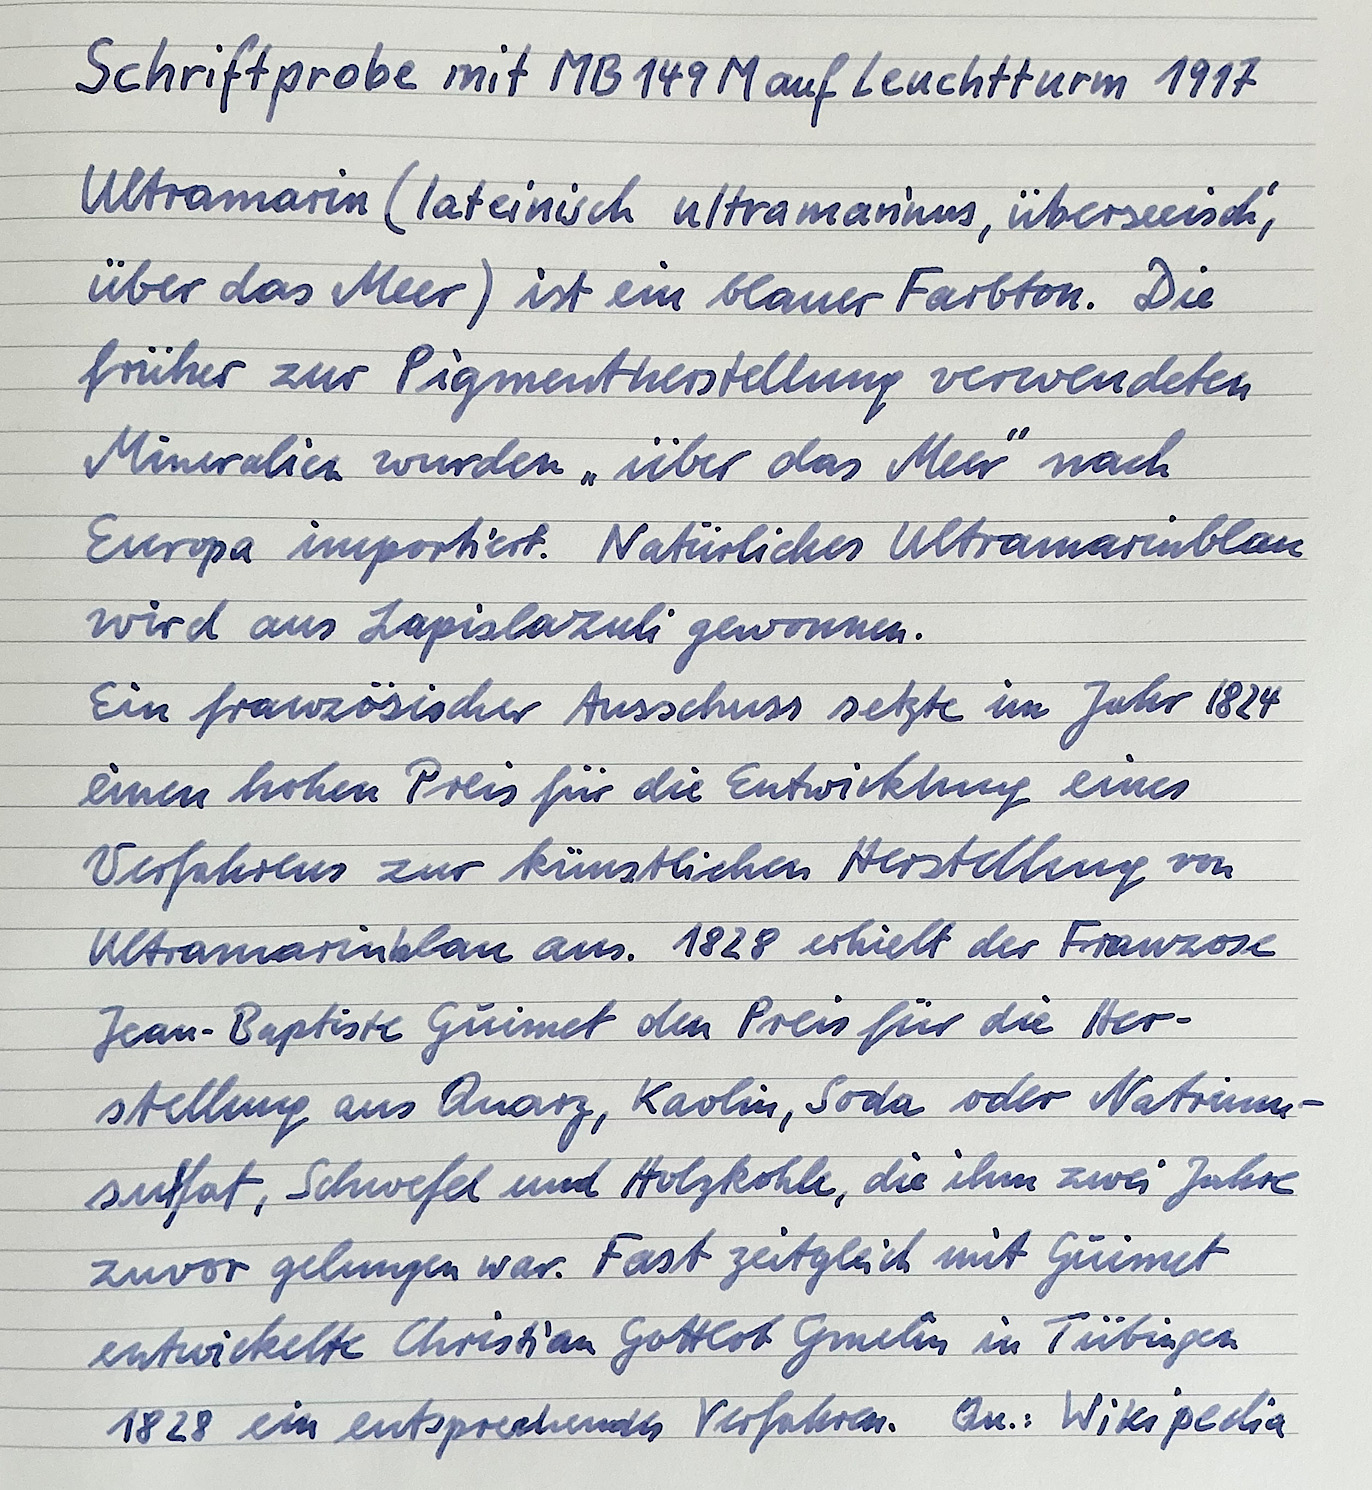 Schriftprobe mit MB 149 M auf Leuchtturm 1917
Ultramarin (lateinisch ultramarinus, überseeisch',
über das Meer) ist ein blauer Farbton. Die
früher zur Pigmentherstellung verwendeten
Mineralien wurden „über das Meer“ nach
Europa importiert. Natürliches Ultramarinblau
wird aus Lapislazuli gewonnen.
Ein französischer Ausschuss setzte im Jahr 1824
einen hohen Preis für die Entwicklung eines
Verfahrens zur künstlichen Herstellung von
Ultramarinblau aus. 1828 erhielt der Franzose
Jean-Baptiste Guimet den Preis für die Her-
stellung aus Quarz, Kaolin, Soda oder Natrium-
sulfat, Schwefel und Holzkohle, die ihm zwei Jahre
zuvor gelungen war. Fast zeitgleich mit Guimet
entwickelte Christian Gottlob Gmelin in Tübingen
1828 ein entsprechendes Verfahren. Qu.: Wikipedia